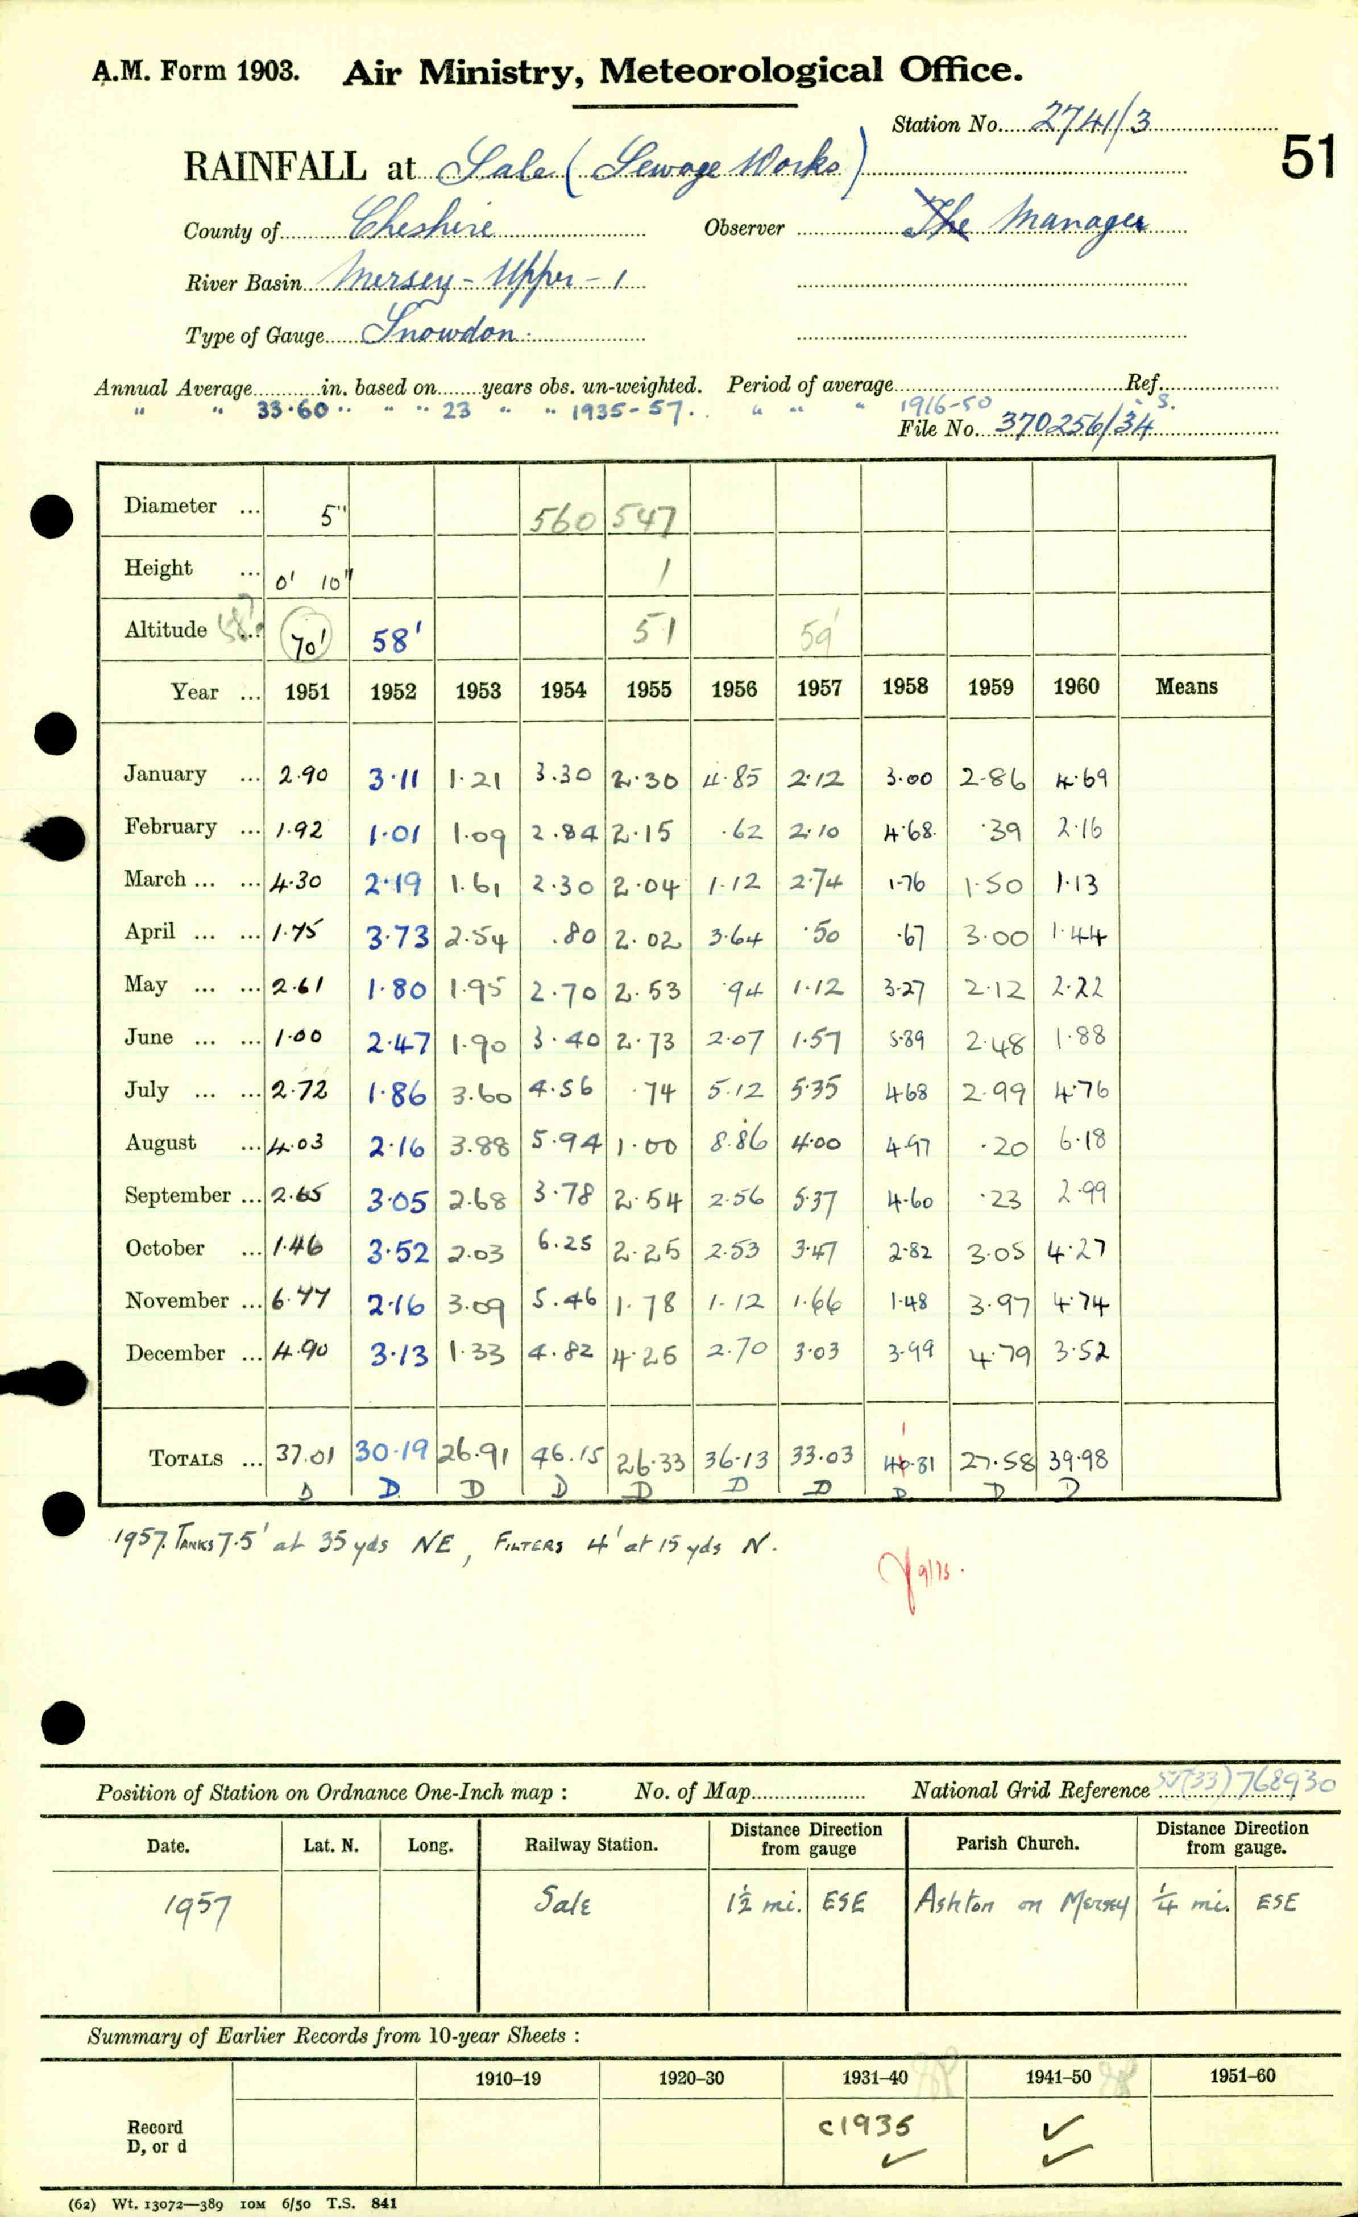 A.M. Form 1903. Air Ministry, Meteorological Office.
Station No. 2741/3
51
RAINFALL at Sale (Sewage Works)
County of Cheshire Observer The Manager
River Basin Mersey - Upper - 1
Type of Gauge Snowdon.
Annual Average in. based on years obs. un-weighted. Period of average Ref.
" " 33.60 " " " 23 " " 1935-57. " " " 1916-50 S.
File No. 370256/34
Diameter ... 5" 560 547
Height ... 0' 10" 1
Altitude ... 58' 70' 58' 51 59'
Year ... 1951 1952 1953 1954 1955 1956 1957 1958 1959 1960 Means
January ... 2.90 3.11 1.21 3.30 2.30 4.85 2.12 3.00 2.86 4.69
February ... 1.92 1.01 1.09 2.84 2.15 .62 2.10 4.68 .39 2.16
March ... ... 4.30 2.19 1.61 2.30 2.04 1.12 2.74 1.76 1.50 1.13
April ... ... 1.75 3.73 2.54 .80 2.02 3.64 .50 .67 3.00 1.44
May ... ... 2.61 1.80 1.95 2.70 2.53 .94 1.12 3.27 2.12 2.22
June ... ... 1.00 2.47 1.90 3.40 2.73 2.07 1.57 5.89 2.48 1.88
July ... ... 2.72 1.86 3.60 4.56 .74 5.12 5.35 4.68 2.99 4.76
August ... 4.03 2.16 3.88 5.94 1.00 8.86 4.00 4.97 .20 6.18
September ... 2.65 3.05 2.68 3.78 2.54 2.56 5.37 4.60 .23 2.99
October ... 1.46 3.52 2.03 6.25 2.25 2.53 3.47 2.82 3.05 4.27
November ... 6.77 2.16 3.09 5.46 1.78 1.12 1.66 1.48 3.97 4.74
December ... 4.90 3.13 1.33 4.82 4.25 2.70 3.03 3.99 4.79 3.52
1
TOTALS ... 37.01 30.19 26.91 46.15 26.33 36.13 33.03 40.81 27.58 39.98
D D D D D D D D D D
1957. TANKS 7.5' at 35 yds NE, FILTERS 4' at 15 yds N.
Position of Station on Ordnance One-Inch map : No. of Map National Grid Reference (33) 768930
Date. Lat. N. Long. Railway Station. Distance Direction from gauge Parish Church. Distance Direction from gauge.
1957 Sale 1½ mi. ESE Ashton on Mersey ¼ mi. ESE
Summary of Earlier Records from 10-year Sheets :
1910–19 1920–30 1931–40 1941–50 1951–60
Record c1935 ✓
D, or d ✓ ✓
(62) Wt. 13072—389 10M 6/50 T.S. 841